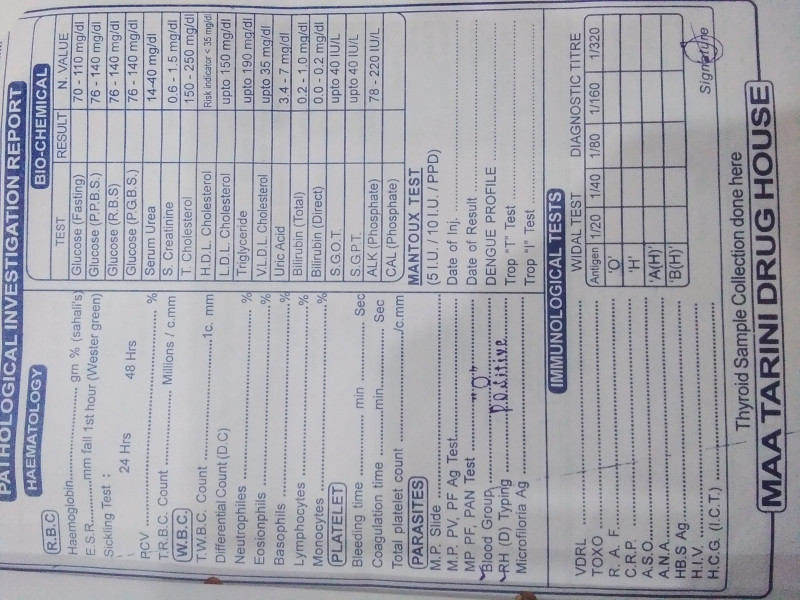 PATHOLOGICAL INVESTIGATION REPORT
HAEMATOLOGY
R.B.C
Haemoglobin............ gm % (sahali's)
E.S.R.........mm fall 1st hour (Wester green)
Sickling Test :
24 Hrs 48 Hrs
PCV ........................................ %
T.R.B.C. Count .................. Millions / c.mm
W.B.C.
T.W.B.C. Count ..............................1c. mm
Differential Count (D.C)
Neutrophiles ........................................%
Eosionphils ........................................%
Basophils ........................................%
Lymphocytes ........................................%
Monocytes ........................................%
PLATELET
Bleeding time ............ min ............ Sec
Coagulation time ............min............ Sec
Total platelet count ........................./c.mm
PARASITES
M.P. Slide ..............................
M.P. PV, PF Ag Test..............................
MP PF, PAN Test ..............................
Blood Group.......... "O"
RH (D) Typing .......... positive
Microfiloria Ag ..............................
BIO-CHEMICAL
TEST RESULT N. VALUE
Glucose (Fasting) 70 - 110 mg/dl
Glucose (P.P.B.S.) 76 - 140 mg/dl
Glucose (R.B.S) 76 - 140 mg/dl
Glucose (P.G.B.S.) 76 - 140 mg/dl
Serum Urea 14-40 mg/dl
S. Creatinine 0.6 - 1.5 mg/dl
T. Cholesterol 150 - 250 mg/dl
H.D.L. Cholesterol Risk indicator < 35 mg/dl
L.D.L. Cholesterol upto 150 mg/dl
Triglyceride upto 190 mg/dl
V.L.D.L. Cholesterol upto 35 mg/dl
Uric Acid 3.4 - 7 mg/dl
Bilirubin (Total) 0.2 - 1.0 mg/dl
Bilirubin (Direct) 0.0 - 0.2 mg/dl
S.G.O.T. upto 40 IU/L
S.G.P.T. upto 40 IU/L
ALK (Phosphate) 78 - 220 IU/L
CAL (Phosphate)
MANTOUX TEST
(5 I.U. / 10 I.U. / PPD)
Date of Inj. ..............................
Date of Result ..............................
DENGUE PROFILE ..............................
Trop "T" Test ..............................
Trop "I" Test ..............................
IMMUNOLOGICAL TESTS
VDRL ..............................
TOXO ..............................
R. A. F. ..............................
C.R.P. ..............................
A.S.O. ..............................
A.N.A. ..............................
HB.S Ag. ..............................
H.I.V. ..............................
H.C.G. (I.C.T.) ..............................
WIDAL TEST DIAGNOSTIC TITRE
Antigen 1/20 1/40 1/80 1/160 1/320
'O'
'H'
'A(H)'
'B(H)'
Signature
Thyroid Sample Collection done here
MAA TARINI DRUG HOUSE